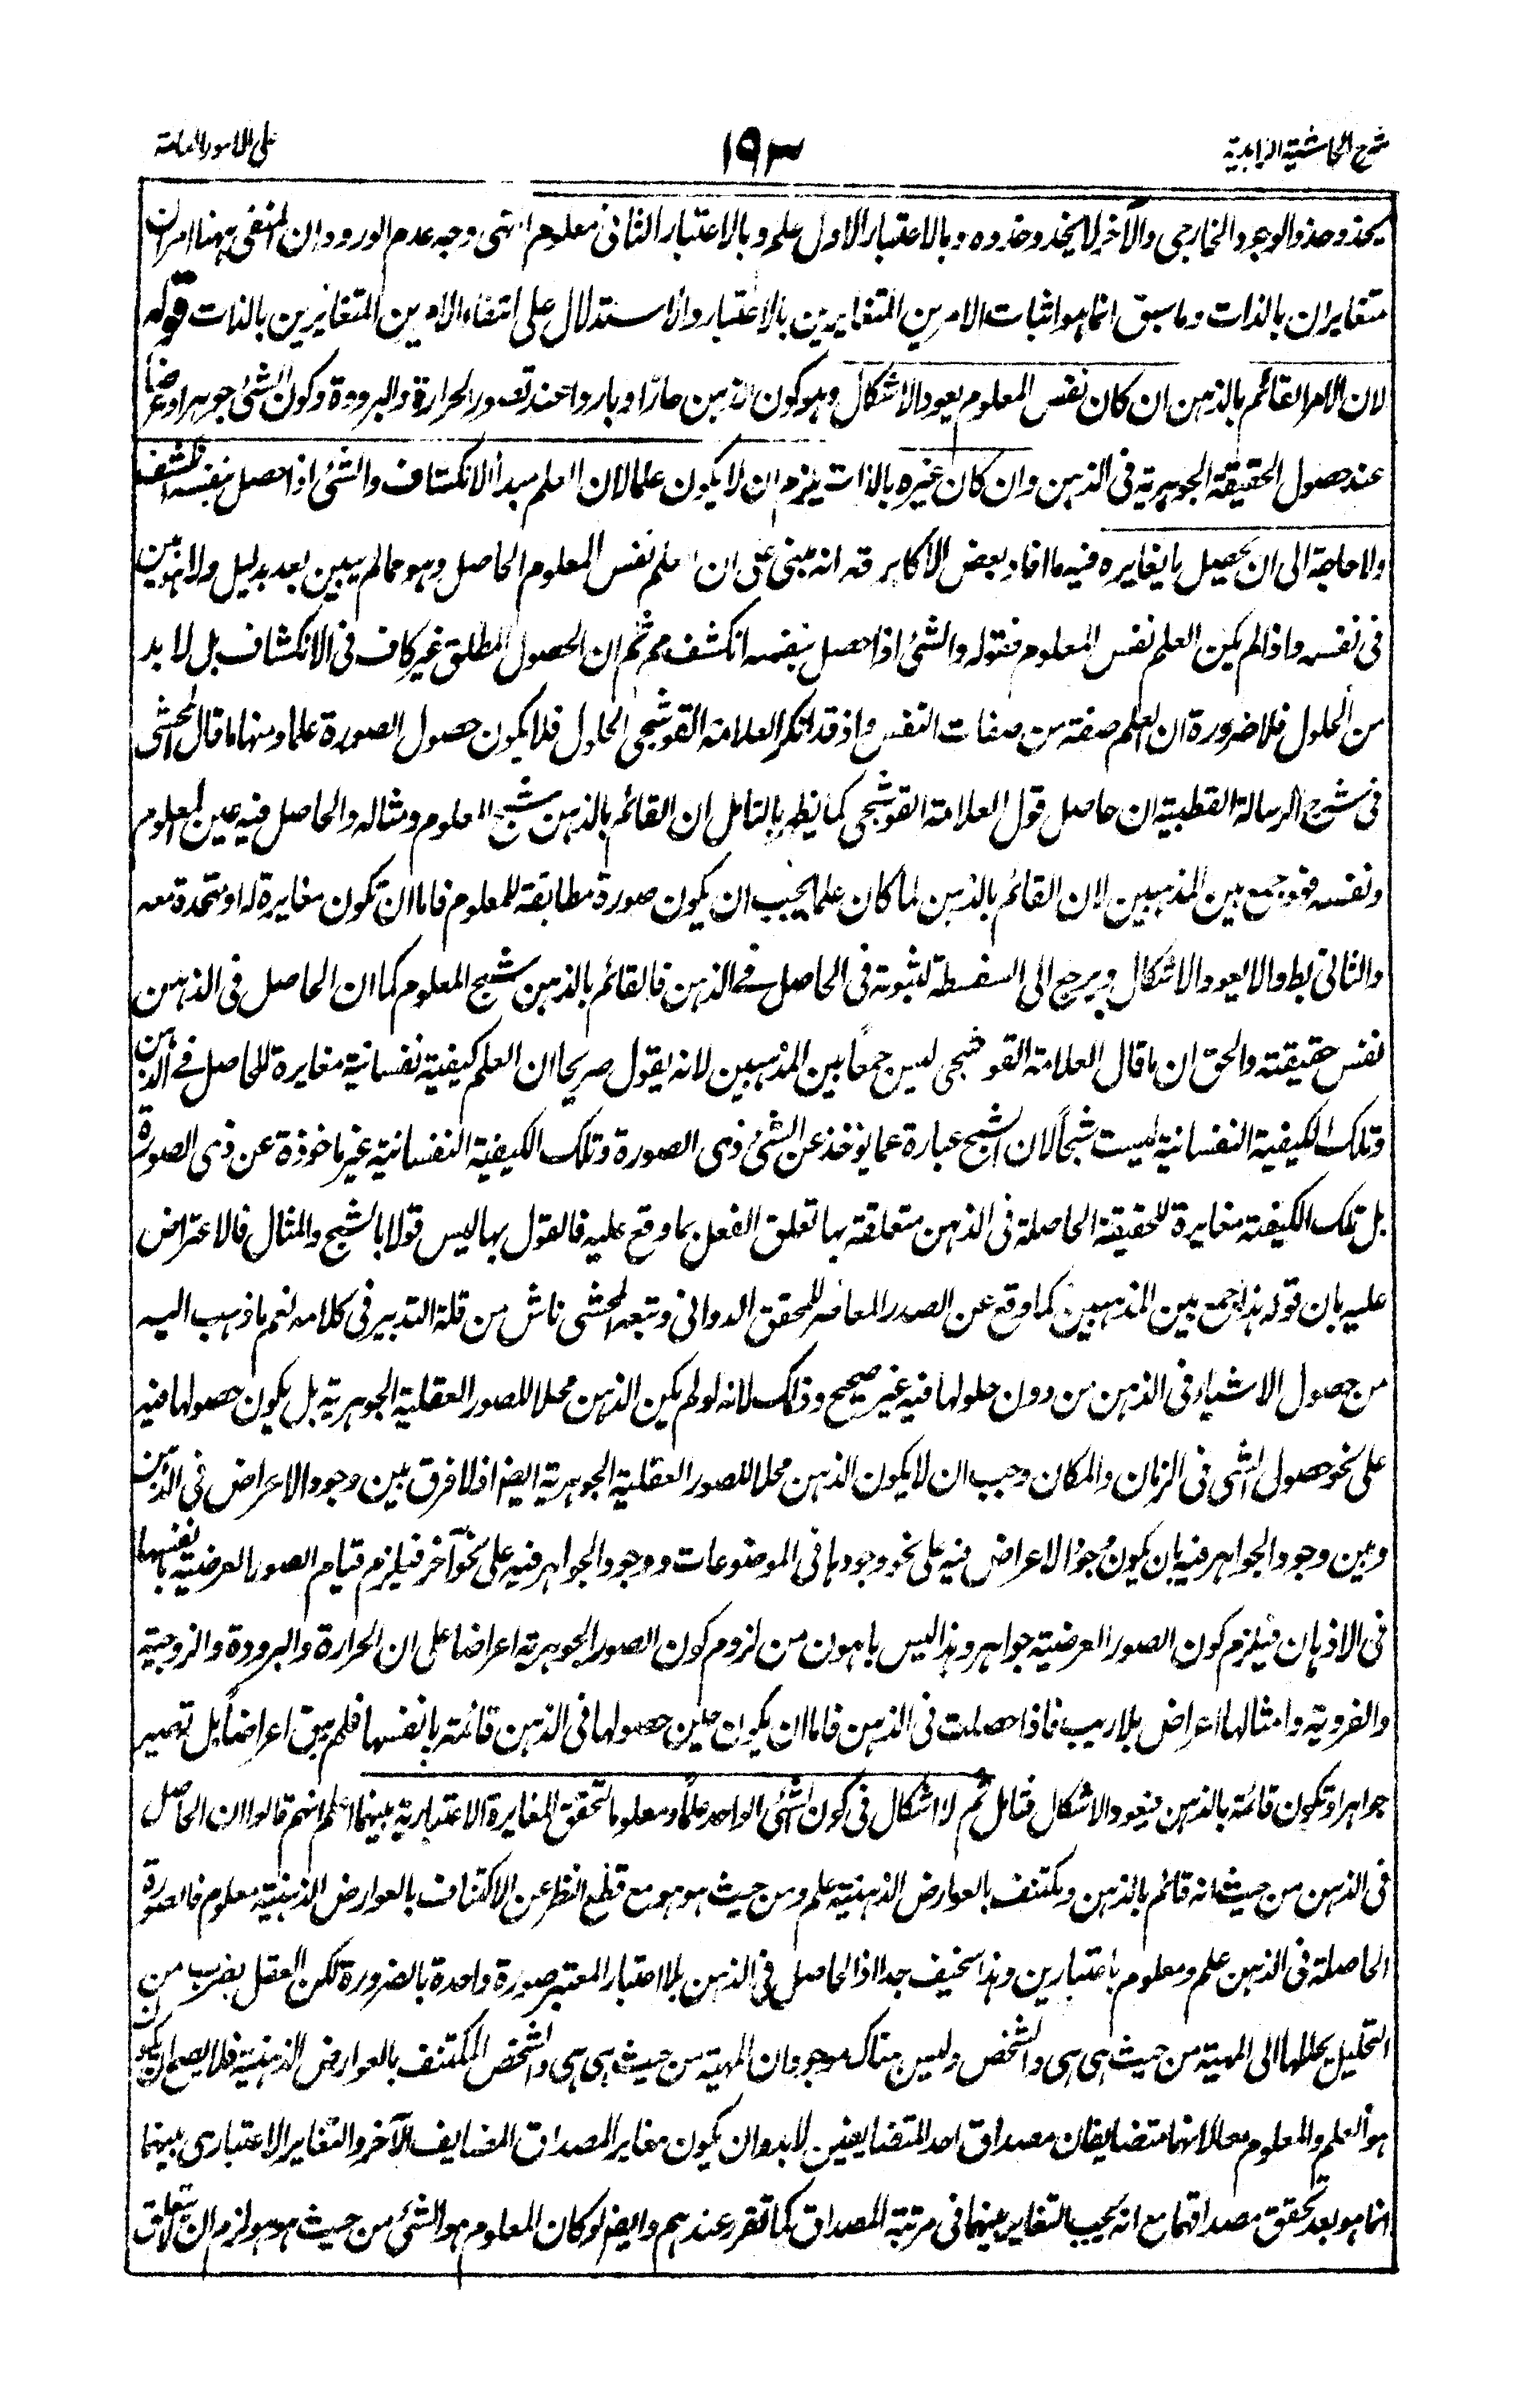 شرح الحاشية الزاهدية
١٩٣
على الامور العامة
يحذو حذو الوجود الخارجى والآخر لا يحذو حذوه وبالاعتبار الاول علم وبالاعتبار الثانى معلوم انتهى وجه عدم الورود ان المنفى ههنا امران
متغايران بالذات وما سبق انما هو اثبات الامرين المتغايرين بالاعتبار والاستدلال على انتفاء الامرين المتغايرين بالذات قوله
لان الامر القائم بالذهن ان كان نفس المعلوم يعود الاشكال وهو كون الذهن حارًا وباردا عند تصور الحرارة والبرودة وكون الشئ جوهرا وعرضا
عند حصول الحقيقة الجوهرية فى الذهن وان كان غيره بالذات يلزم ان لا يكون علما لان العلم مبدأ الانكشاف والشئ اذا حصل بنفسه انكشف
ولا حاجة الى ان يحصل ما يغايره فيه ما افاد بعض الاكابر قه انه مبنى على ان العلم نفس المعلوم الحاصل وهو مما لم يبين بعد بدليل ولا هو بين
فى نفسه واذا لم يكن العلم نفس المعلوم فقوله والشئ اذا حصل بنفسه انكشف مم ثم ان الحصول المطلق غير كاف فى الانكشاف بل لا بد
من الحلول فلا ضرورة ان العلم صفة من صفات النفس واذ قد انكر العلامة القوشجى الحلول فلا يكون حصول الصورة علما ومنها ما قال المحشى
فى شرح الرسالة القطبية ان حاصل قول العلامة القوشجى كما يظهر بالتامل ان القائم بالذهن شبح المعلوم ومثاله والحاصل فيه عين المعلوم
ونفسه فهو جمع بين المذهبين لان القائم بالذهن لما كان علما يجب ان يكون صورة مطابقة للمعلوم فاما ان تكون مغايرة له او متحدة معه
والثانى بط والا يعود الاشكال ويرجع الى السفسطة لثبوته فى الحاصل فى الذهن فالقائم بالذهن شبح المعلوم كما ان الحاصل فى الذهن
نفس حقيقته والحق ان ما قال العلامة القوشجى ليس جمعًا بين المذهبين لانه يقول صريحا ان العلم كيفية نفسانية مغايرة للحاصل فى الذهن
وتلك الكيفية النفسانية ليست شبحًا لان الشبح عبارة عما يوخذ عن الشئ ذى الصورة وتلك الكيفية النفسانية غير ماخوذة عن ذى الصورة
بل تلك الكيفية مغايرة للحقيقة الحاصلة فى الذهن متعلقة بها تعلق الفعل بما وقع عليه فالقول بها ليس قولا بالشبح والمثال فالاعتراض
عليه بان قوله هذا جمع بين المذهبين كما وقع عن الصدر المعاصر للمحقق الدوانى وتبعه المحشى ناش من قلة التدبير فى كلامه نعم ما ذهب اليه
من حصول الاشياء فى الذهن من دون حلولها فيه غير صحيح وذلك لانه لو لم يكن الذهن محلا للصور العقلية الجوهرية بل يكون حصولها فيه
على نحو حصول الشئ فى الزمان والمكان وجب ان لا يكون الذهن محلا للصور العقلية الجوهرية ايضا اذ لا فرق بين وجود الاعراض فى الذهن
وبين وجود الجواهر فيه بان يكون وجود الاعراض فيه على نحو وجودها فى الموضوعات ووجود الجواهر فيه على نحو آخر فيلزم قيام الصور العرضية بانفسها
فى الاذهان فيلزم كون الصور العرضية جواهر وهذا ليس باهون من لزوم كون الصور الجوهرية اعراضا على ان الحرارة والبرودة والزوجية
والفردية وامثالها اعراض بلا ريب فاذا حصلت فى الذهن فاما ان يكون حين حصولها فى الذهن قائمة بانفسها فلم يبق اعراضاً بل تصير
جواهر او تكون قائمة بالذهن فيعود الاشكال فتامل ثم لا اشكال فى كون الشئ الواحد علما ومعلوما لتحقق المغايرة الاعتبارية بينهما اعلم انهم قالوا ان الحاصل
فى الذهن من حيث انه قائم بالذهن ومكتنف بالعوارض الذهنية علم ومن حيث هو هو مع قطع النظر عن الاكتناف بالعوارض الذهنية معلوم فالصورة
الحاصلة فى الذهن علم ومعلوم باعتبارين وهذا سخيف جدا اذ الحاصل فى الذهن بلا اعتبار المعتبر صورة واحدة بالضرورة لكن العقل بضرب من
التحليل يحللها الى المهية من حيث هى هى والشخص وليس هناك موجودان المهية من حيث هى هى والشخص المكتنف بالعوارض الذهنية فلا يصح ان يكون
هو العلم والمعلوم معا لانهما متضايفان مصداق احد المتضايفين لا بد وان يكون مغاير المصداق المضايف الآخر والتغاير الاعتبارى بينهما
انما هو بعد تحقق مصداقهما مع انه يجب التغاير بينهما فى مرتبة المصداق كما تقرر عندهم وايضا لو كان المعلوم هو الشئ من حيث هو هو لزم ان لا يتعلق